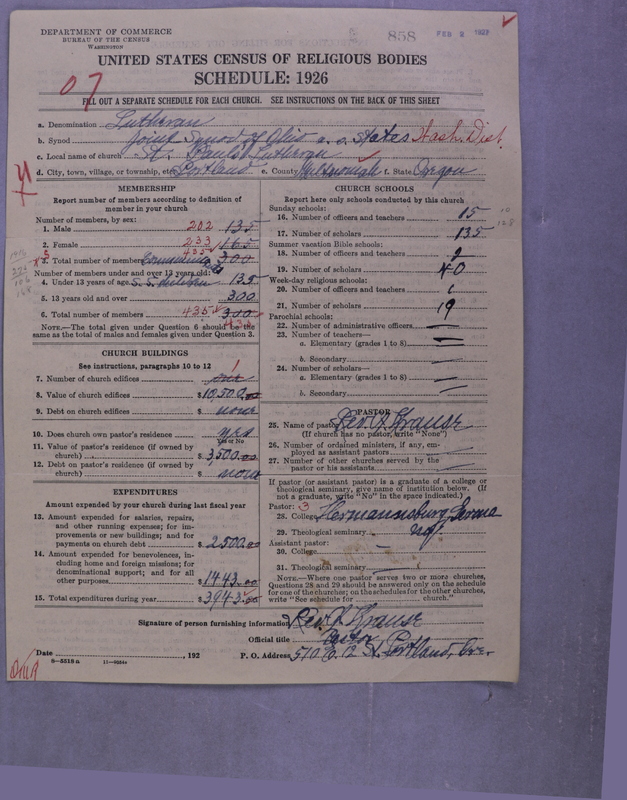 DEPARTMENT OF COMMERCE
BUREAU OF THE CENSUS
WASHINGTON
858
FEB 2 1927
UNITED STATES CENSUS OF RELIGIOUS BODIES
SCHEDULE: 1926
07
FILL OUT A SEPARATE SCHEDULE FOR EACH CHURCH. SEE INSTRUCTIONS ON THE BACK OF THIS SHEET
a. Denomination Lutheran
b. Synod Joint Synod of Ohio a. o. States Wash. Dist.
c. Local name of church St. Pauls Lutheran
d. City, town, village, or township, etc. Portland e. County Multnomah f. State Oregon
MEMBERSHIP
Report number of members according to definition of member in your church
Number of members, by sex:
1. Male 202 135
2. Female 233 165
3. Total number of members 435 300
Number of members under and over 13 years old:
4. Under 13 years of age S. S. children 135
5. 13 years old and over 300
6. Total number of members 435 300
NOTE.—The total given under Question 6 should be the same as the total of males and females given under Question 3.
CHURCH BUILDINGS
See instructions, paragraphs 10 to 12
7. Number of church edifices one 1
8. Value of church edifices $ 10,500.00
9. Debt on church edifices $ none
10. Does church own pastor's residence yes
Yes or No
11. Value of pastor's residence (if owned by church) $ 3,500.00
12. Debt on pastor's residence (if owned by church) $ none
EXPENDITURES
Amount expended by your church during last fiscal year
13. Amount expended for salaries, repairs, and other running expenses; for improvements or new buildings; and for payments on church debt $ 2500.00
14. Amount expended for benevolences, including home and foreign missions; for denominational support; and for all other purposes $ 1443.00
15. Total expenditures during year $ 3943.00
CHURCH SCHOOLS
Report here only schools conducted by this church
Sunday schools:
16. Number of officers and teachers 15
17. Number of scholars 135
Summer vacation Bible schools:
18. Number of officers and teachers 2
19. Number of scholars 40
Week-day religious schools:
20. Number of officers and teachers 1
21. Number of scholars 19
Parochial schools:
22. Number of administrative officers
23. Number of teachers—
a. Elementary (grades 1 to 8)
b. Secondary
24. Number of scholars—
a. Elementary (grades 1 to 8)
b. Secondary
PASTOR
25. Name of pastor Rev. A. Krause
(If church has no pastor, write "None")
26. Number of ordained ministers, if any, employed as assistant pastors
27. Number of other churches served by the pastor or his assistants
If pastor (or assistant pastor) is a graduate of a college or theological seminary, give name of institution below. (If not a graduate, write "No" in the space indicated.)
Pastor: 3
28. College Hermannsburg Germa
29. Theological seminary ny.
Assistant pastor:
30. College
31. Theological seminary
NOTE.—Where one pastor serves two or more churches, Questions 28 and 29 should be answered only on the schedule for one of the churches; on the schedules for the other churches, write "See schedule for church."
Signature of person furnishing information Rev. A. Krause
Official title Pastor
Date , 192 P. O. Address 510 E. 12 St. Portland, Ore.
8—5518a 11—9284